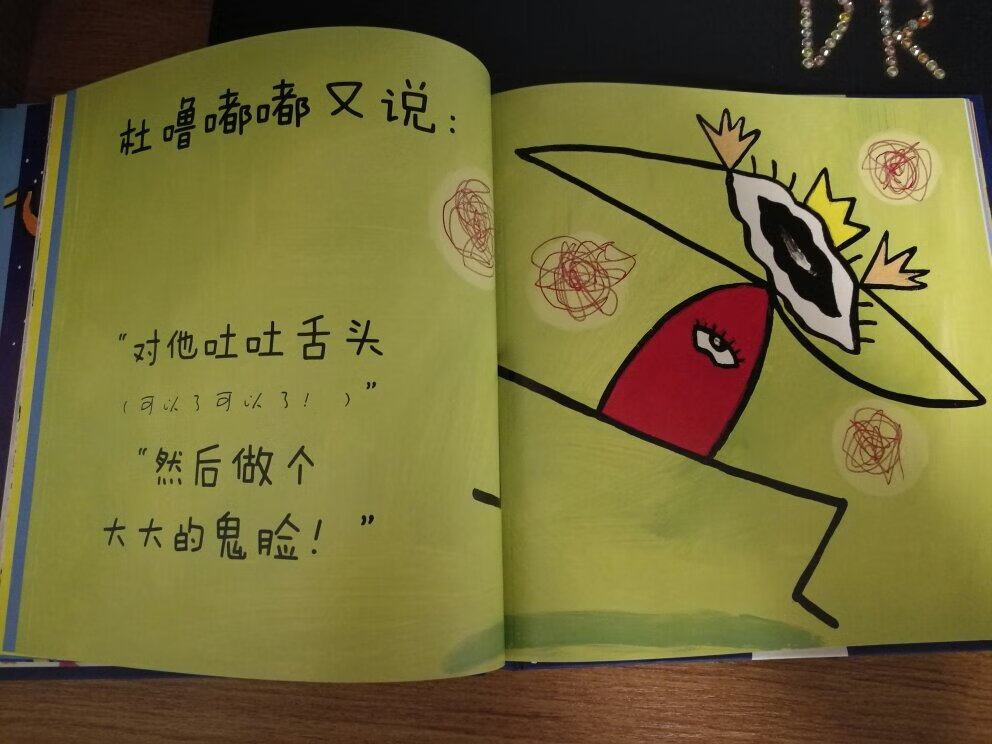 杜噜嘟嘟又说：
“对他吐吐舌头
（可以了可以了！）”
“然后做个
大大的鬼脸！”
DR